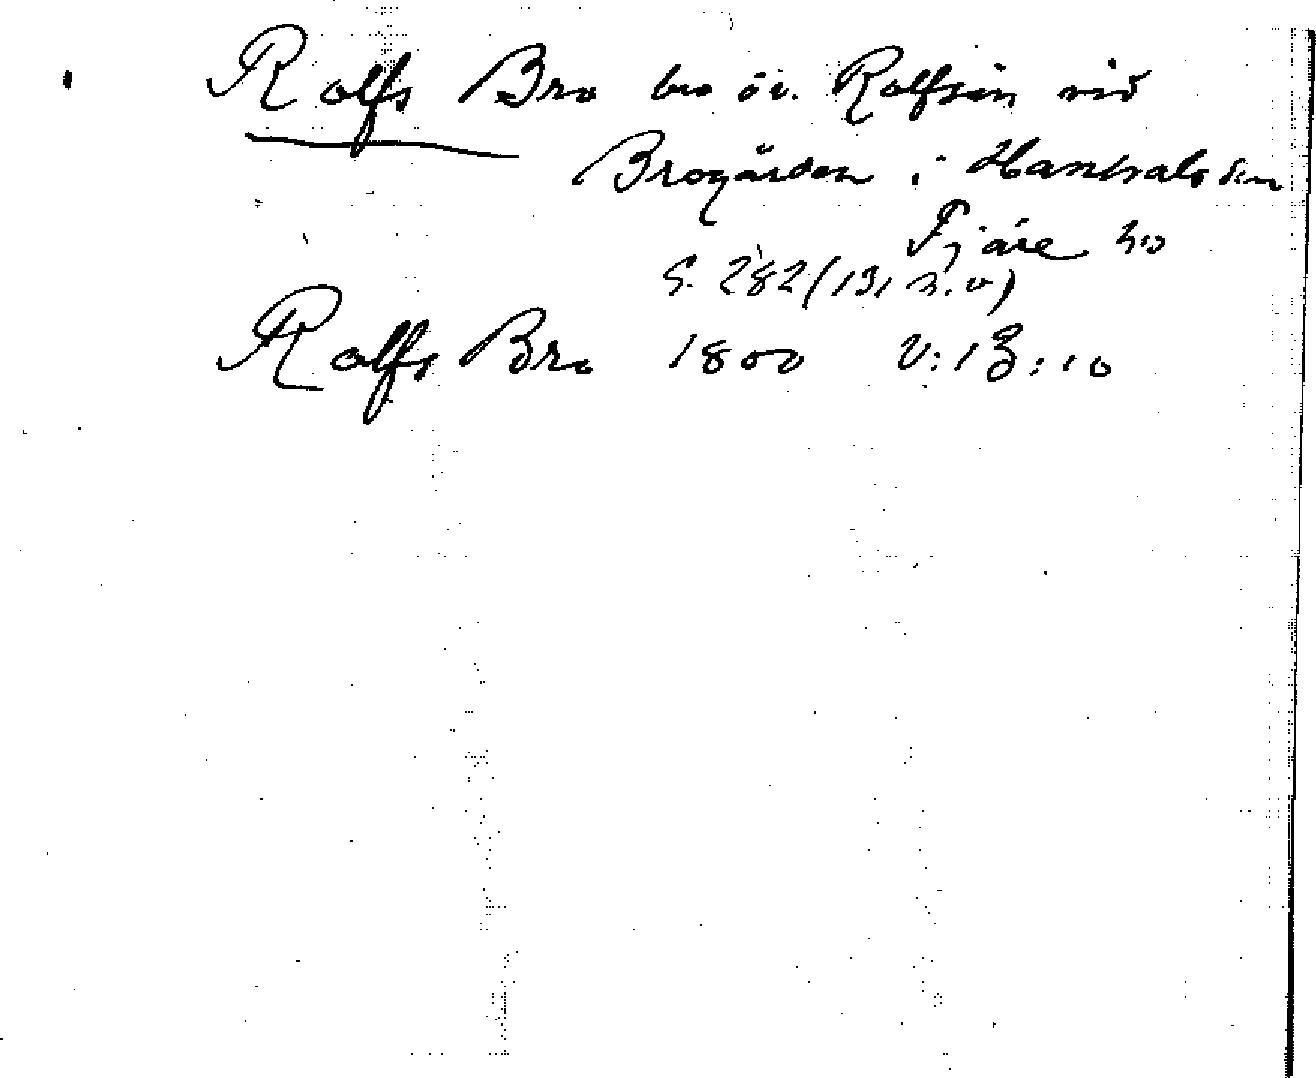 Rolfs Bro bro öv. Rolfsån vid
Brogården i Hanhals sn
Fjäre hd
S. 282 (131 n.v)
Rolfs Bro 1800 V:13:10